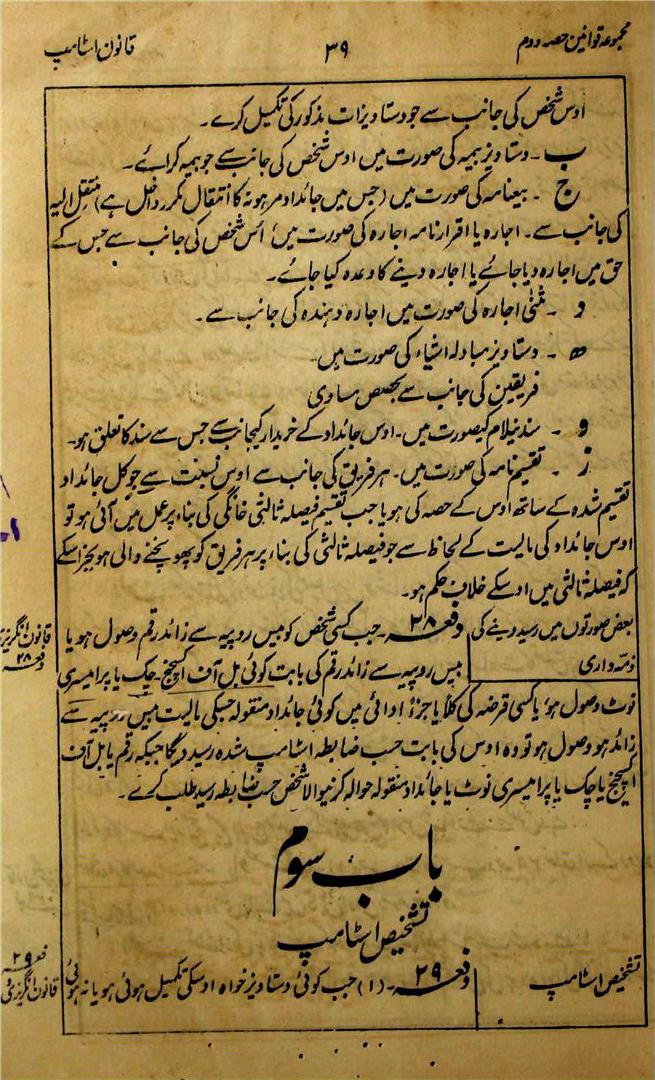 مجموعہ قوانین حصہ دوم
۳۹
قانون اسٹامپ
اوس شخص کی جانب سے جو دستاویزات مذکور کی تکمیل کرے۔
ب۔ دستاویز بیمہ کی صورت میں اوس شخص کی جانب سے جو بیمہ کرائے۔
ج۔ بیعنامہ کی صورت میں (جس میں جائداد مرہونہ کا انتقال مکرر داخل ہے) منتقل الیہ
کی جانب سے۔ اجارہ یا اقرار نامہ اجارہ کی صورت میں اُس شخص کی جانب سے جس کے
حق میں اجارہ دیا جائے یا اجارہ دینے کا وعدہ کیا جائے۔
د۔ مثنیٰ اجارہ کی صورت میں اجارہ دہندہ کی جانب سے۔
ھ۔ دستاویز مبادلہ اشیاء کی صورت میں۔
فریقین کی جانب سے بحصص مساوی
و۔ سند نیلام کیصورت میں۔ اوس جائداد کے خریدار کیجانب سے جس سے سند کا تعلق ہو۔
ز۔ تقسیم نامہ کی صورت میں۔ ہر فریق کی جانب سے اوس نسبت سے جو کل جائداد
تقسیم شدہ کے ساتھ اوس کے حصہ کی ہو یا جب تقسیم فیصلہ ثالثی خانگی کی بناء پر عمل میں آئی ہو تو
اوس جائداد کی مالیت کے لحاظ سے جو فیصلہ ثالثی کی بناء پر ہر فریق کو پہونچنے والی ہو بجز اسکے
کہ فیصلہ ثالثی میں اوسکے خلاف حکم ہو۔
بعض صورتوں میں رسید دینے کی
ذمہ داری
دفعہ ۲۸۔ جب کسی شخص کو بیس روپیہ سے زائد رقم وصول ہو یا
بیس روپیہ سے زائد رقم کی بابت کوئی بل آف اکسچنج چک یا پرامیسری
قانون انگریزی
دفعہ ۲۸
نوٹ وصول ہو یا کسی قرضہ کی کلاً یا جزءً ادائی میں کوئی جائداد منقولہ جسکی مالیت بیس روپیہ سے
زائد ہو وصول ہو تو وہ اوس کی بابت حسب ضابطہ اسٹامپ شدہ رسید دیگا جبکہ رقم یا بل آف
اکسچنج یا چک یا پرامیسری نوٹ یا جائداد منقولہ حوالہ کرنیوالا شخص حسب ضابطہ رسید طلب کرے۔
باب سوم
تشخیص اسٹامپ
تشخیص اسٹامپ
دفعہ ۲۹۔ (۱) جب کوئی دستاویز خواہ اوسکی تکمیل ہوئی ہو یا نہ ہوئی
دفعہ ۲۹
قانون انگریزی